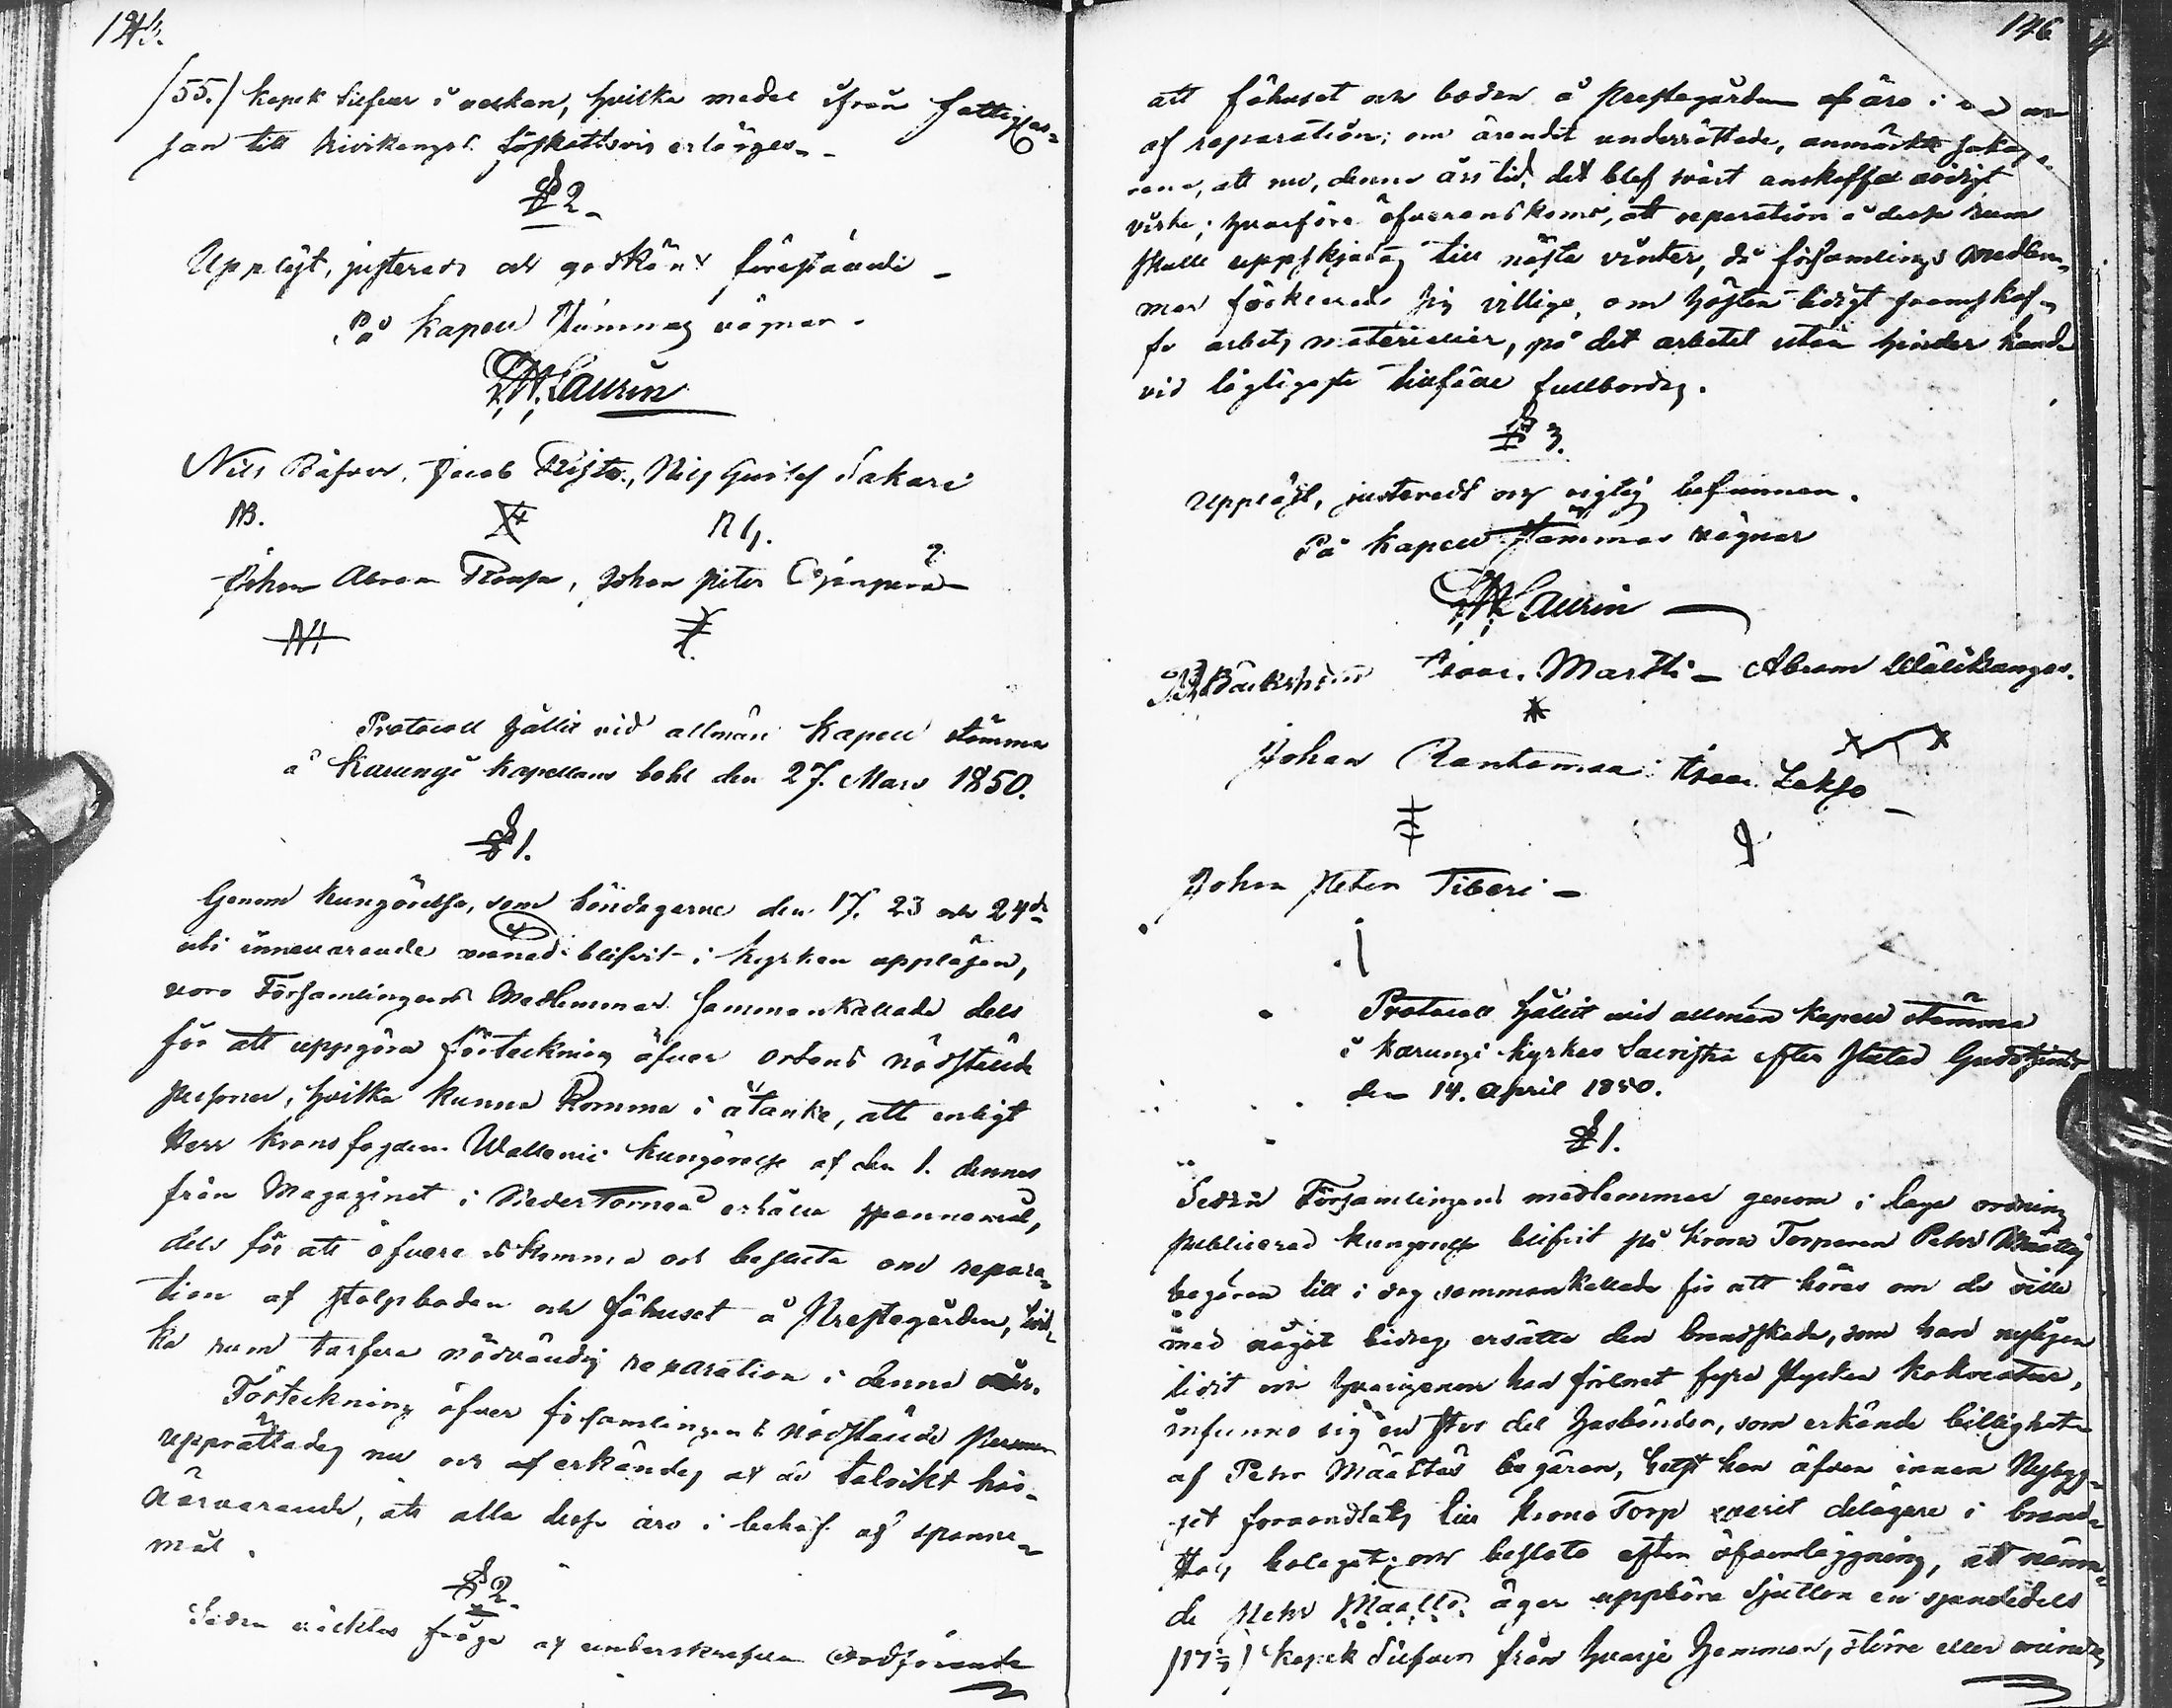 /55./ kopek silfver i veckan, hvilka medel ifrån Fattigcas-
san till Kivikangas förskottsvis erlägges.
§ 2.
Uppläst, justerads och godkänt föreståendе
På Kapell Stämmas vägnar.
Laurin
Nils Jacob Nils Gustaf Sakari
NB. NG.
Johan Abram Johan Peter
Protocoll hållit vid allmän Kapell stämma
å Karungi Kapellans bohl den 27. Mars 1850.
§ 1.
Genom kungörelse, som böndagarne den 17. 23 och 24de
uti innevarande månad blifvit i kyrkan uppläsen,
voro Församlingens Medlemmar sammankallade dels
för att uppgöra förteckning öfver ortens nödstälde
personer, hvilka kunna komma i åtanke, att enligt
Herr Kronofogden kungörelse af den 1. dennes
från Magazinet i NederTorneå erhålla spannemål,
dels för att öfverenskomma och besluta om repara-
tion af stolpboden och fähuset å Prestegården, hvil-
ka rum tarfva nödvändig reparation i denna vår.
Förteckning öfver församlingens nödstälde personer
upprättades nu och erkändes af de talrikt här-
närvarande, att alla desse äro i behof af spanne-
mål.
§ 2.
Sedan väcktes fråga af underskrifven Ordförande
146
att fähuset och boden å Prestegården äro i
af reparation; om ärendet underrättade, anmärkte
att nu, denna årstid, det blef svårt anskaffa
virke; hvarföre öfverenskoms, att reparation å desse rum
skulle uppskjutas till nästa vinter, då församlings medlem-
mar förklarade sig villiga, om hösten tidigt framskaf-
fa arbets materialier, på det arbetet utan hinder kunde
vid lägligaste tillfälle fullbordas.
§ 3.
Uppläst, justeradt och rigtig befunnen.
På Kapell Stämmas vägnar
Laurin
Bäckström Isaac Martti Abram Wälikangas.
Johan Rantamaa Isaac Lakso
Johan Peter Tiberi
Protocoll hållit vid allmän Kapell stämma
i Karungi Kyrkas Sacristia efter slutad Gudstjenst
den 14. April 1850.
§ 1.
Sedan Församlingens medlemmar genom i laga ordning
publicerad kungörelse blifvit på Krono Torparen Pehr Määttäs
begäran till i dag sammankallade för att höras om de ville
med något bidrag ersätta den brandskada, som han nyligen
lidit och hvarigenom han förlorat fyra stycken kokreatur,
infunno sig en stor del hasbönder, som erkände billigheten
af Pehr Määttäs begäran, helst han äfven innan Nybyg-
get förvandlats till Krono Torp varit delägare i brand-
stods bolaget; och besloto efter öfverläggning, att nämn-
de Pehr Määttä äger uppbära Sjutton en sjundedels
/17 1/7/ kopek Silfver från hvarje hemman, större eller mindre,